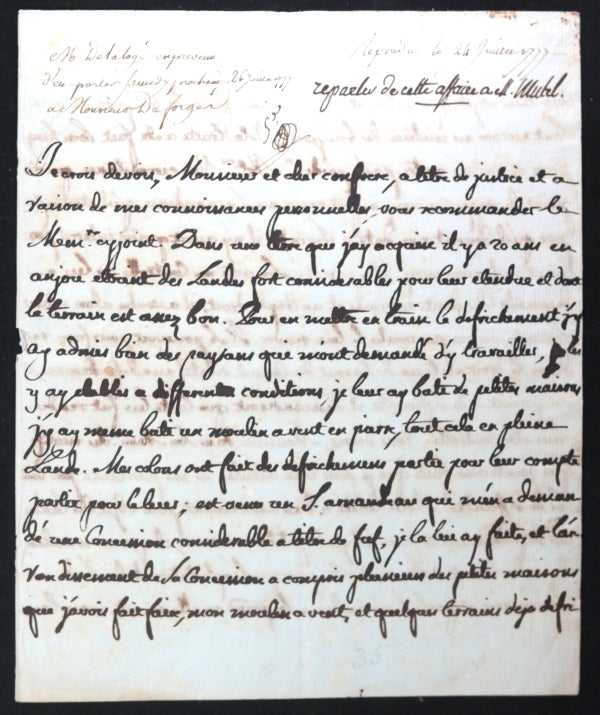 Repondu le 24 Juillet 1777
M. Delaloge
d'en parler samedy prochain 26 Juillet 1777
a Monsieur Deforges
reparler de cette affaire a M.
Je crois devoir, Monsieur et cher confrere, a titre de justice et a
raison de mes connoissances personnelles, vous recommander le
Mem.re cyjoint. Dans une terre que j'ay acquise il y a 20 ans en
anjou etoient des Landes fort considerables pour leur etendue et dont
le terrain est assez bon. Pour en mettre en train le defrichement j'y
ay admis bien des paysans qui m'ont demandé d'y travailler, je les
y ay etablis a differentes conditions, je leur ay bati de petites maisons
j'y ay meme bati un moulin a vent en pierre, tout cela en pleine
Lande. Mes colons ont fait des defrichemens partie pour leur compte
partie pour le leur; est venu un S. arnaudeau qui m'en a deman
dé une Concession considerable a titre de fief, je la lui ay faite, et l'ar
rondissement de sa Concession a compris plusieurs des petites maisons
que j'avois fait faire, mon moulin a vent, et quelques terrains deja defri
36